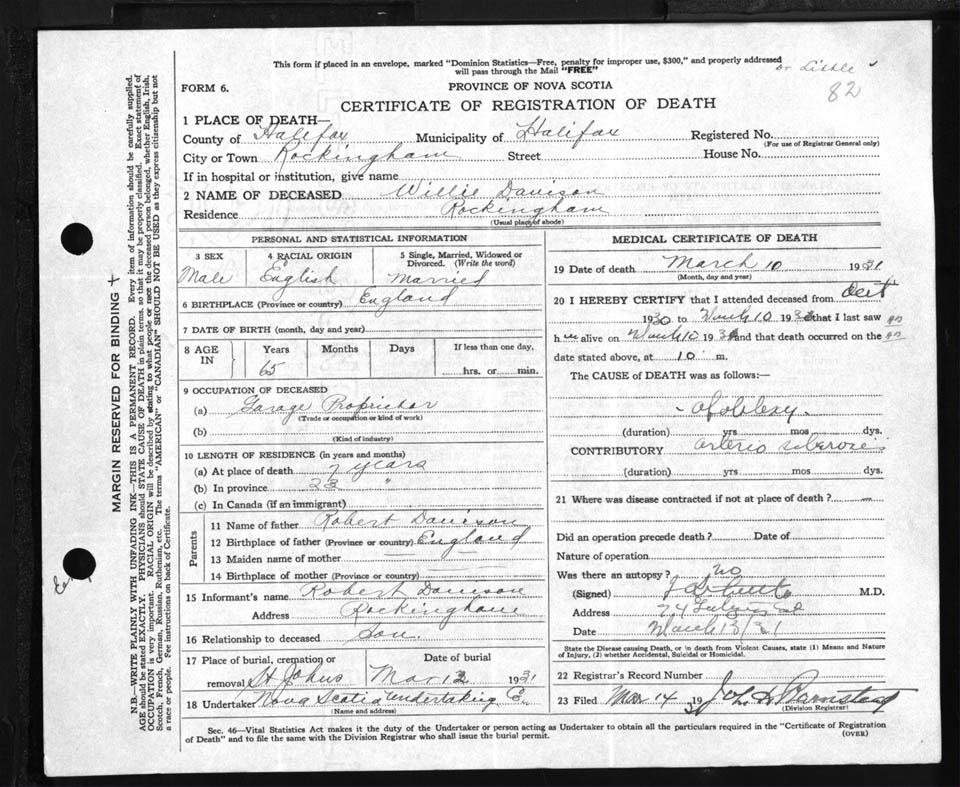 This form if placed in an envelope, marked "Dominion Statistics—Free, penalty for improper use, $300," and properly addressed
will pass through the Mail "FREE"
or Little
82
FORM 6.
PROVINCE OF NOVA SCOTIA
CERTIFICATE OF REGISTRATION OF DEATH
1 PLACE OF DEATH—
County of Halifax Municipality of Halifax Registered No.
(For use of Registrar General only)
City or Town Rockingham Street House No.
If in hospital or institution, give name
2 NAME OF DECEASED Willie Davison
Residence Rockingham
(Usual place of abode)
PERSONAL AND STATISTICAL INFORMATION
3 SEX 4 RACIAL ORIGIN 5 Single, Married, Widowed or Divorced. (Write the word)
Male English Married
6 BIRTHPLACE (Province or country) England
7 DATE OF BIRTH (month, day and year)
8 AGE IN Years Months Days If less than one day,
65 hrs. or min.
9 OCCUPATION OF DECEASED
(a) Garage Proprietor
(Trade or occupation or kind of work)
(b)
(Kind of industry)
10 LENGTH OF RESIDENCE (in years and months)
(a) At place of death 7 years
(b) In province 23 "
(c) In Canada (if an immigrant)
Parents
11 Name of father Robert Davison
12 Birthplace of father (Province or country) England
13 Maiden name of mother —
14 Birthplace of mother (Province or country)
15 Informant's name Robert Davison
Address Rockingham
16 Relationship to deceased Son.
17 Place of burial, cremation or removal Date of burial
St Johns Mar 12 1931
18 Undertaker Nova Scotia Undertaking Co
(Name and address)
MEDICAL CERTIFICATE OF DEATH
19 Date of death March 10 1931
(Month, day and year)
20 I HEREBY CERTIFY that I attended deceased from Oct
1930 to March 10 1931 that I last saw
h im alive on March 10 1931 and that death occurred on the
date stated above, at 10 m.
The CAUSE of DEATH was as follows:—
Apoplexy.
(duration) yrs mos dys.
CONTRIBUTORY arterio sclerosis
(duration) yrs mos dys.
21 Where was disease contracted if not at place of death? —
Did an operation precede death? Date of
Nature of operation
Was there an autopsy? no
(Signed) M.D.
Address 74
Date March 13/31
State the Disease causing Death, or in death from Violent Causes, state (1) Means and Nature
of Injury, (2) whether Accidental, Suicidal or Homicidal.
22 Registrar's Record Number
23 Filed Mar 14 1931
(Division Registrar)
Sec. 46—Vital Statistics Act makes it the duty of the Undertaker or person acting as Undertaker to obtain all the particulars required in the "Certificate of Registration
of Death" and to file the same with the Division Registrar who shall issue the burial permit.
(OVER)
MARGIN RESERVED FOR BINDING
N.B.—WRITE PLAINLY WITH UNFADING INK—THIS IS A PERMANENT RECORD. Every item of information should be carefully supplied.
AGE should be stated EXACTLY. PHYSICIANS should STATE CAUSE OF DEATH in plain terms, so that it may be properly classified. Exact statement of
OCCUPATION is very important. RACIAL ORIGIN will be described by stating to what people or race the deceased person belonged, whether English, Irish,
Scotch, French, German, Russian, Ruthenian, etc. The terms "AMERICAN" or "CANADIAN" SHOULD NOT BE USED as they express citizenship but not
a race or people. See instructions on back of Certificate.